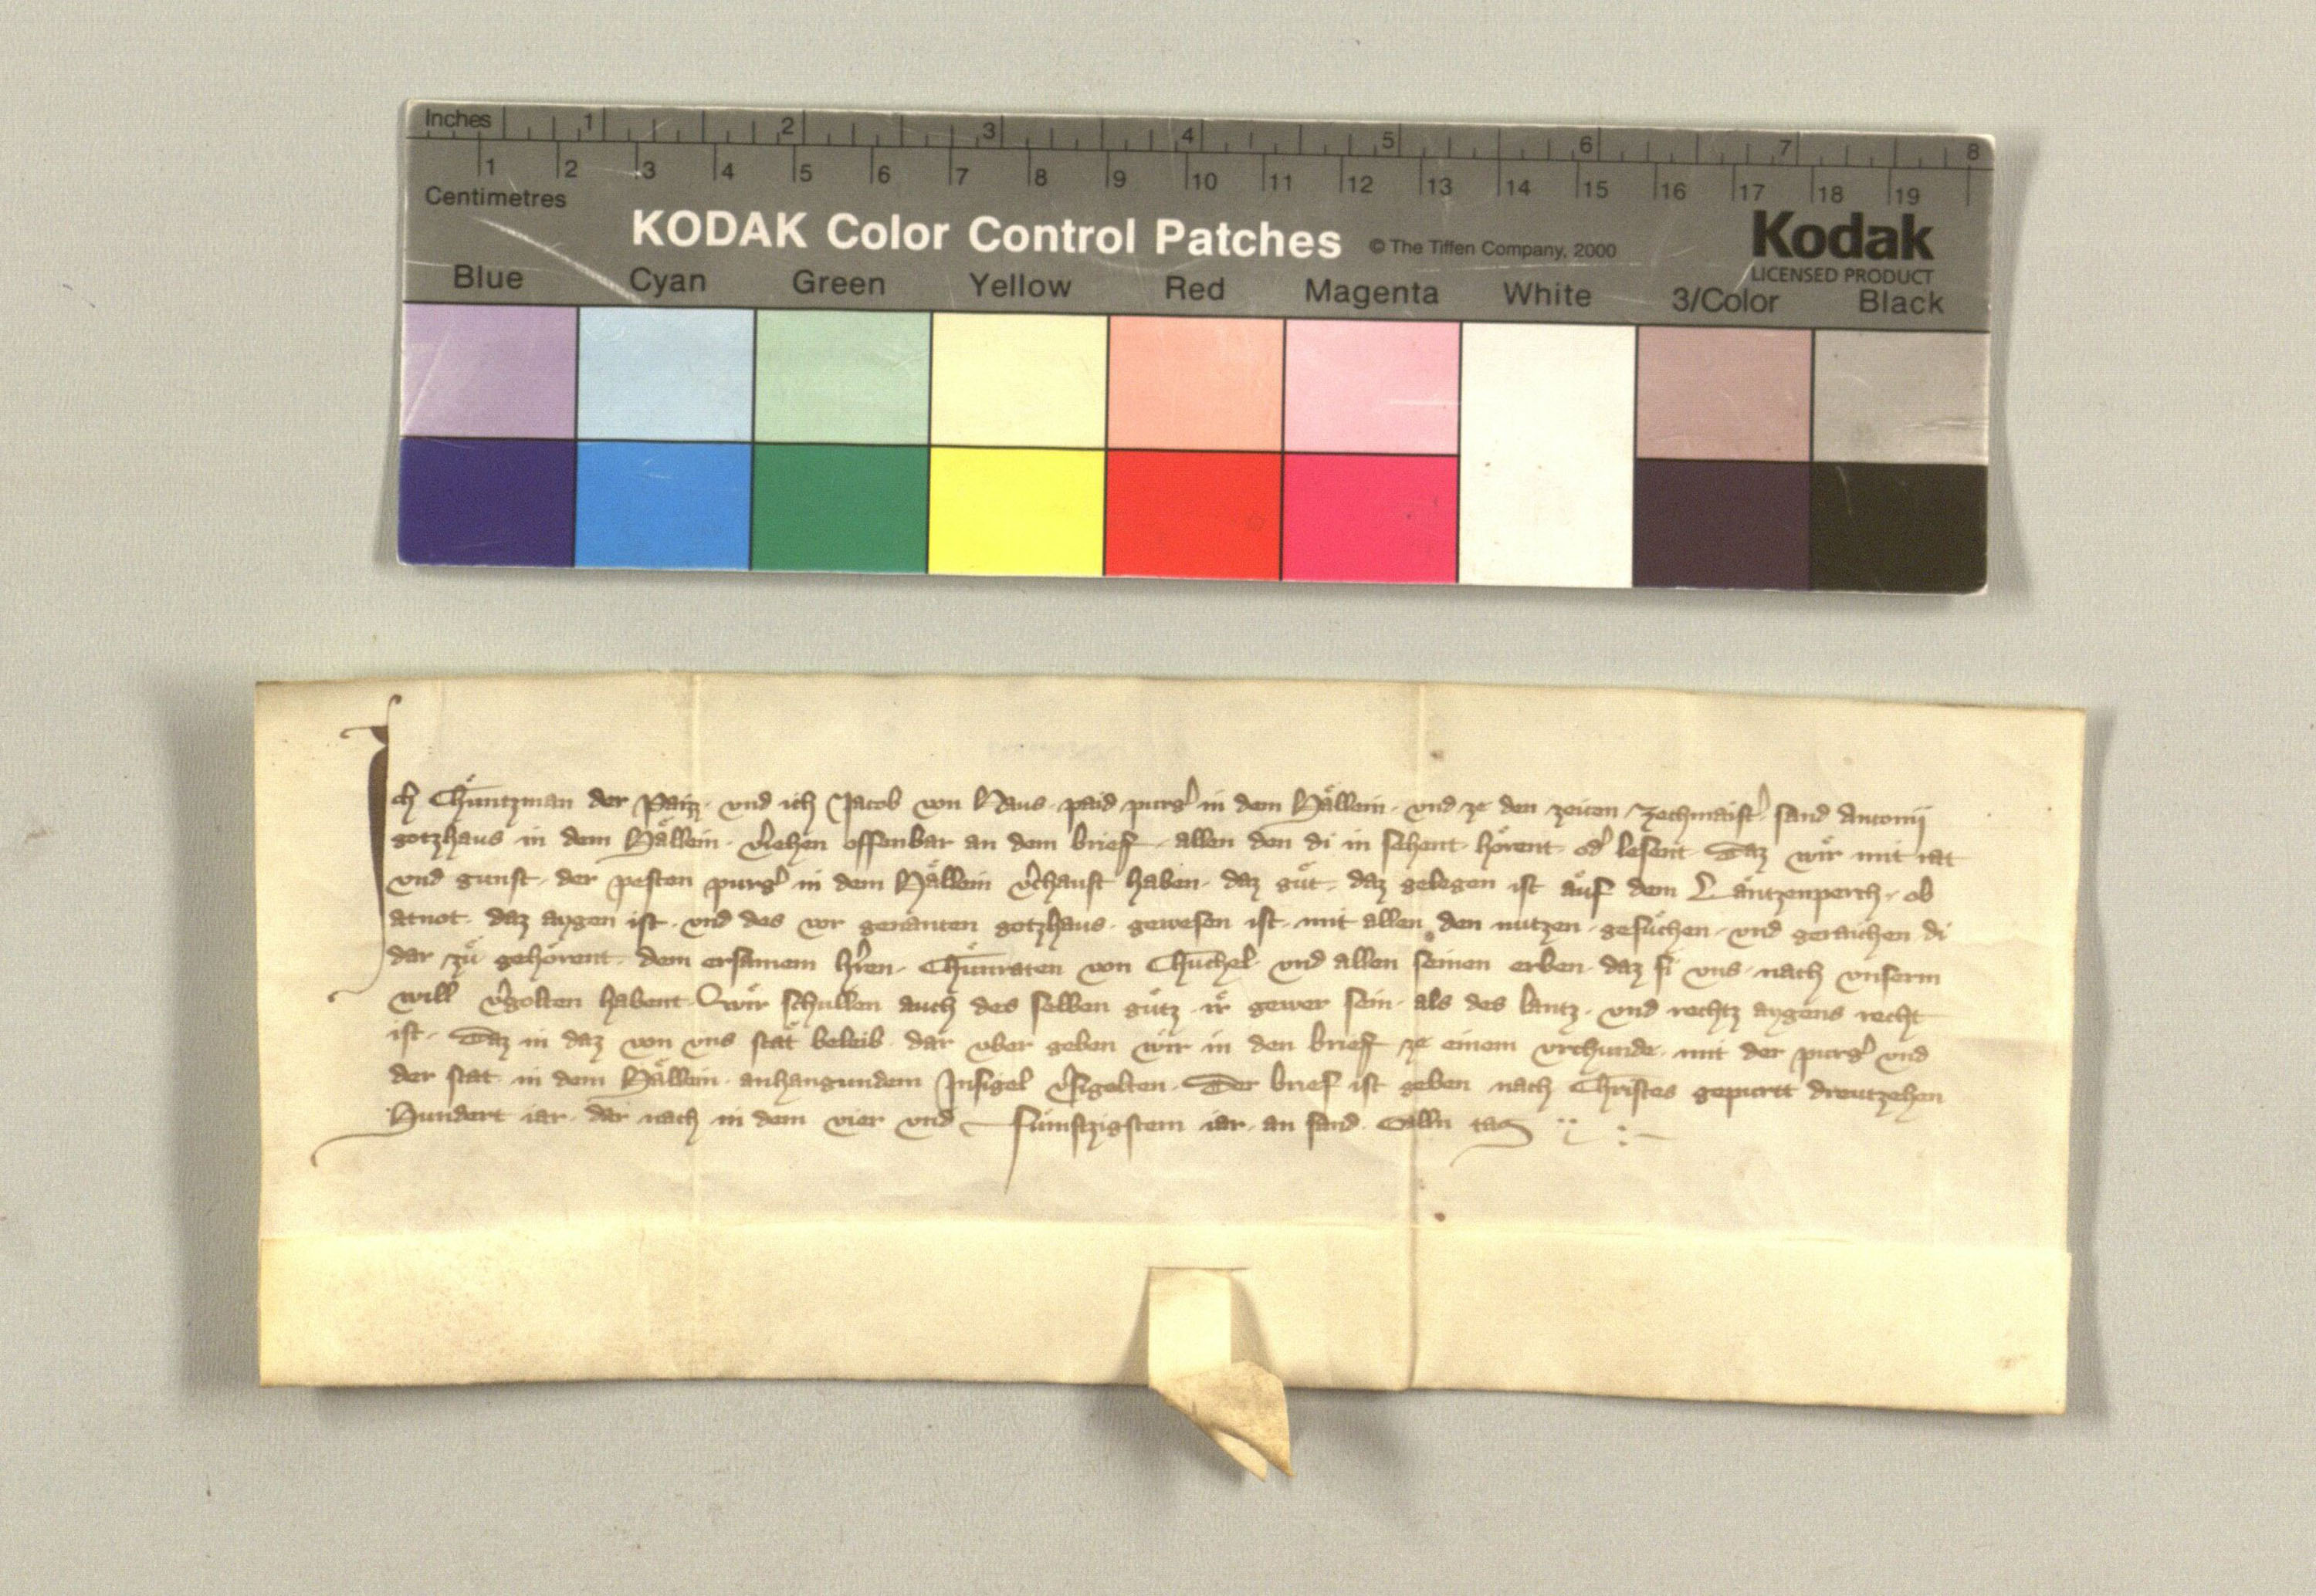 Inches 1 2 3 4 5 6 7 8
1 2 3 4 5 6 7 8 9 10 11 12 13 14 15 16 17 18 19
Centimetres
KODAK Color Control Patches © The Tiffen Company, 2000 Kodak
LICENSED PRODUCT
Blue Cyan Green Yellow Red Magenta White 3/Color Black
Ich Chuͤntzman der Paizz · vnd ich Jacob von Haus · paid purgˀ in dem Haͤllein · vnd ze den zeiten zechmaistˀ sand Antonij
gotzhaus in dem Haͤllein · vˀiehen offenbar an dem brief · allen den di in sehent · hoͤrent · odˀ lesent · Daz wir mit rat
vnd gunst · der pesten purgˀ in dem Haͤllein vˀchauft haben · daz guͤt · daz gelegen ist auͤf dem Laͤntzenperch · ob
atnot · daz aygen ist · vnd des vor genanten gotzhaus · gewesen ist · mit allen den nutzen · gesuͤchen · vnd geraichen di
dar zuͤ gehoͤrent · dem ersamem hˀren · Chuͤnraten von Chuchel · vnd allen seinen erben · daz si vns · nach vnserm
will vˀgolten habent · wir schullen auch des selben guͤtz · ir gewer sein · als des lantz · vnd rechtz aygens recht
ist · Daz in daz von vns staͤt beleib · dar vber geben wir in den brief ze einem vrchunde · mit der purgˀ vnd
der stat in dem Haͤllein · anhangundem Insigel vˀsigelten · Der brief ist geben nach Christes gepurtt dreutzehen
Hundert iar · dar nach in dem vier vnd fumftzigstem iar · an sand Gallñ tag